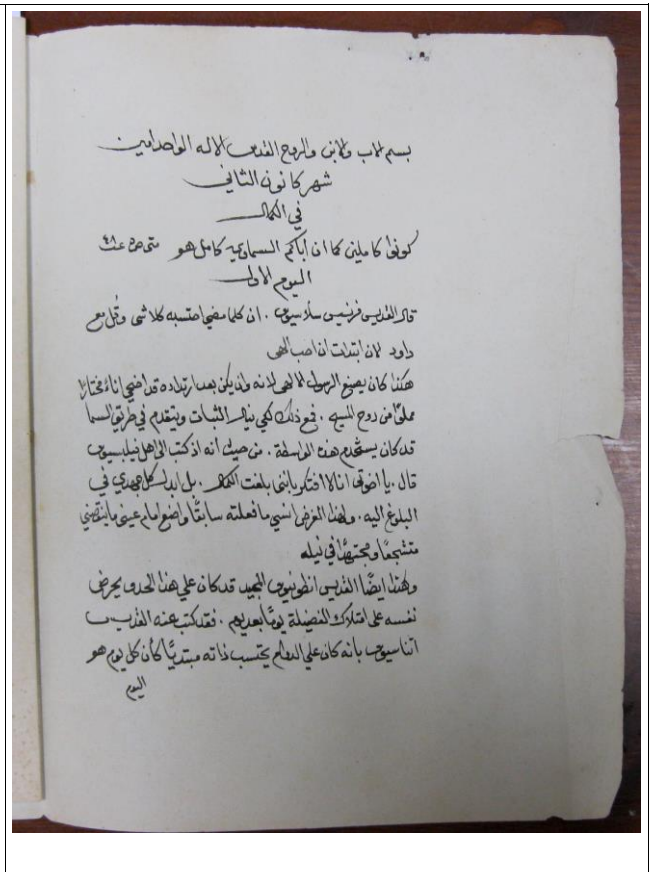 بسم الاب والابن والروح القدس الاله الواحد امين
شهر كانون الثاني
في الكمال
كونوا كاملين كما ان أباكم السماوي كامل هو متى ص٥ عد ٤٨
اليوم الاول
قال القديس فرنسيس سلاسيوس . ان كلما مضى احتسبه كلا شي وقُل مع
داود الان ابتدات ان احب الهي
هكذا كان يصنع الرسول الالهي لانه ولئن يكن بعد ارتداده قد اضحى اناءً مختارًا
مملوًا من روح المسيح . فمع ذلك لكي ينال الثبات ويتقدم في طريق السما
قد كان يستخدم هذه الواسطة . من حيث أنه اذ كتب الى اهل فيليبسيوس
قال . يا اخوتي انا لا افتكر بانني بلغت الكمال . بل ابذل كل جهدي في
البلوغ اليه . ولهذا الغرض انسي ما فعلته سابقًا واضع امام عيني ما ينقصني
متشجعًا ومجتهدًا في نيله
وهكذا ايضًا القديس انطونيوس المجيد قد كان علي هذا الحد ويحرض
نفسه على امتلاك الفضيلة يومًا بعد يوم . فقد كتب عنه القديس
اتناسيوس بانه كان علي الدوام يحتسب ذاته مبتديًا كأن كل يوم هو
اليوم